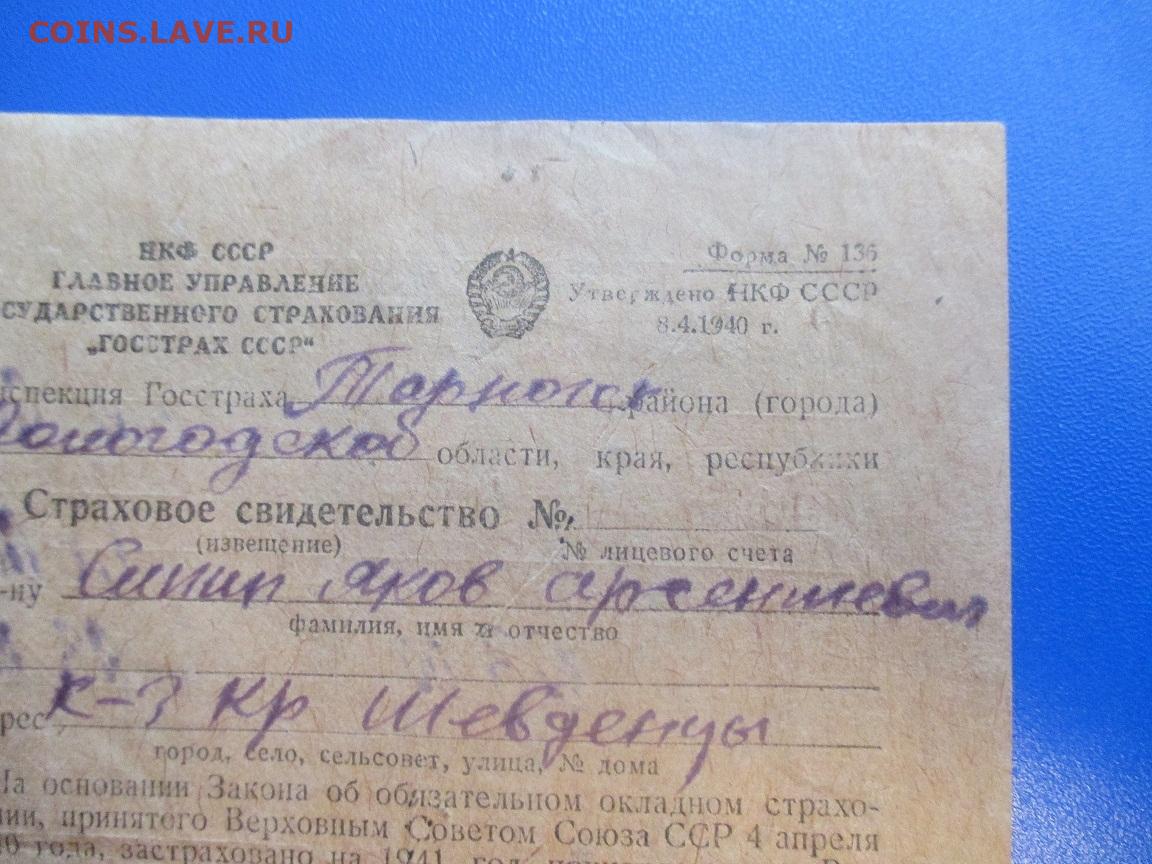 COINS.LAVE.RU
НКФ СССР
ГЛАВНОЕ УПРАВЛЕНИЕ
СУДАРСТВЕННОГО СТРАХОВАНИЯ
„ГОССТРАХ СССР“
Форма № 136
Утверждено НКФ СССР
8.4.1940 г.
спекция Госстраха Тарногск района (города)
Вологодской области, края, республики
Страховое свидетельство №
(извещение) № лицевого счета
-ну Синип Яков Арсениевич
фамилия, имя и отчество
рес К-з Кр Шевденцы
город, село, сельсовет, улица, № дома
На основании Закона об обязательном окладном страхо-
нии, принятого Верховным Советом Союза ССР 4 апреля
года, застраховано на 1941 год